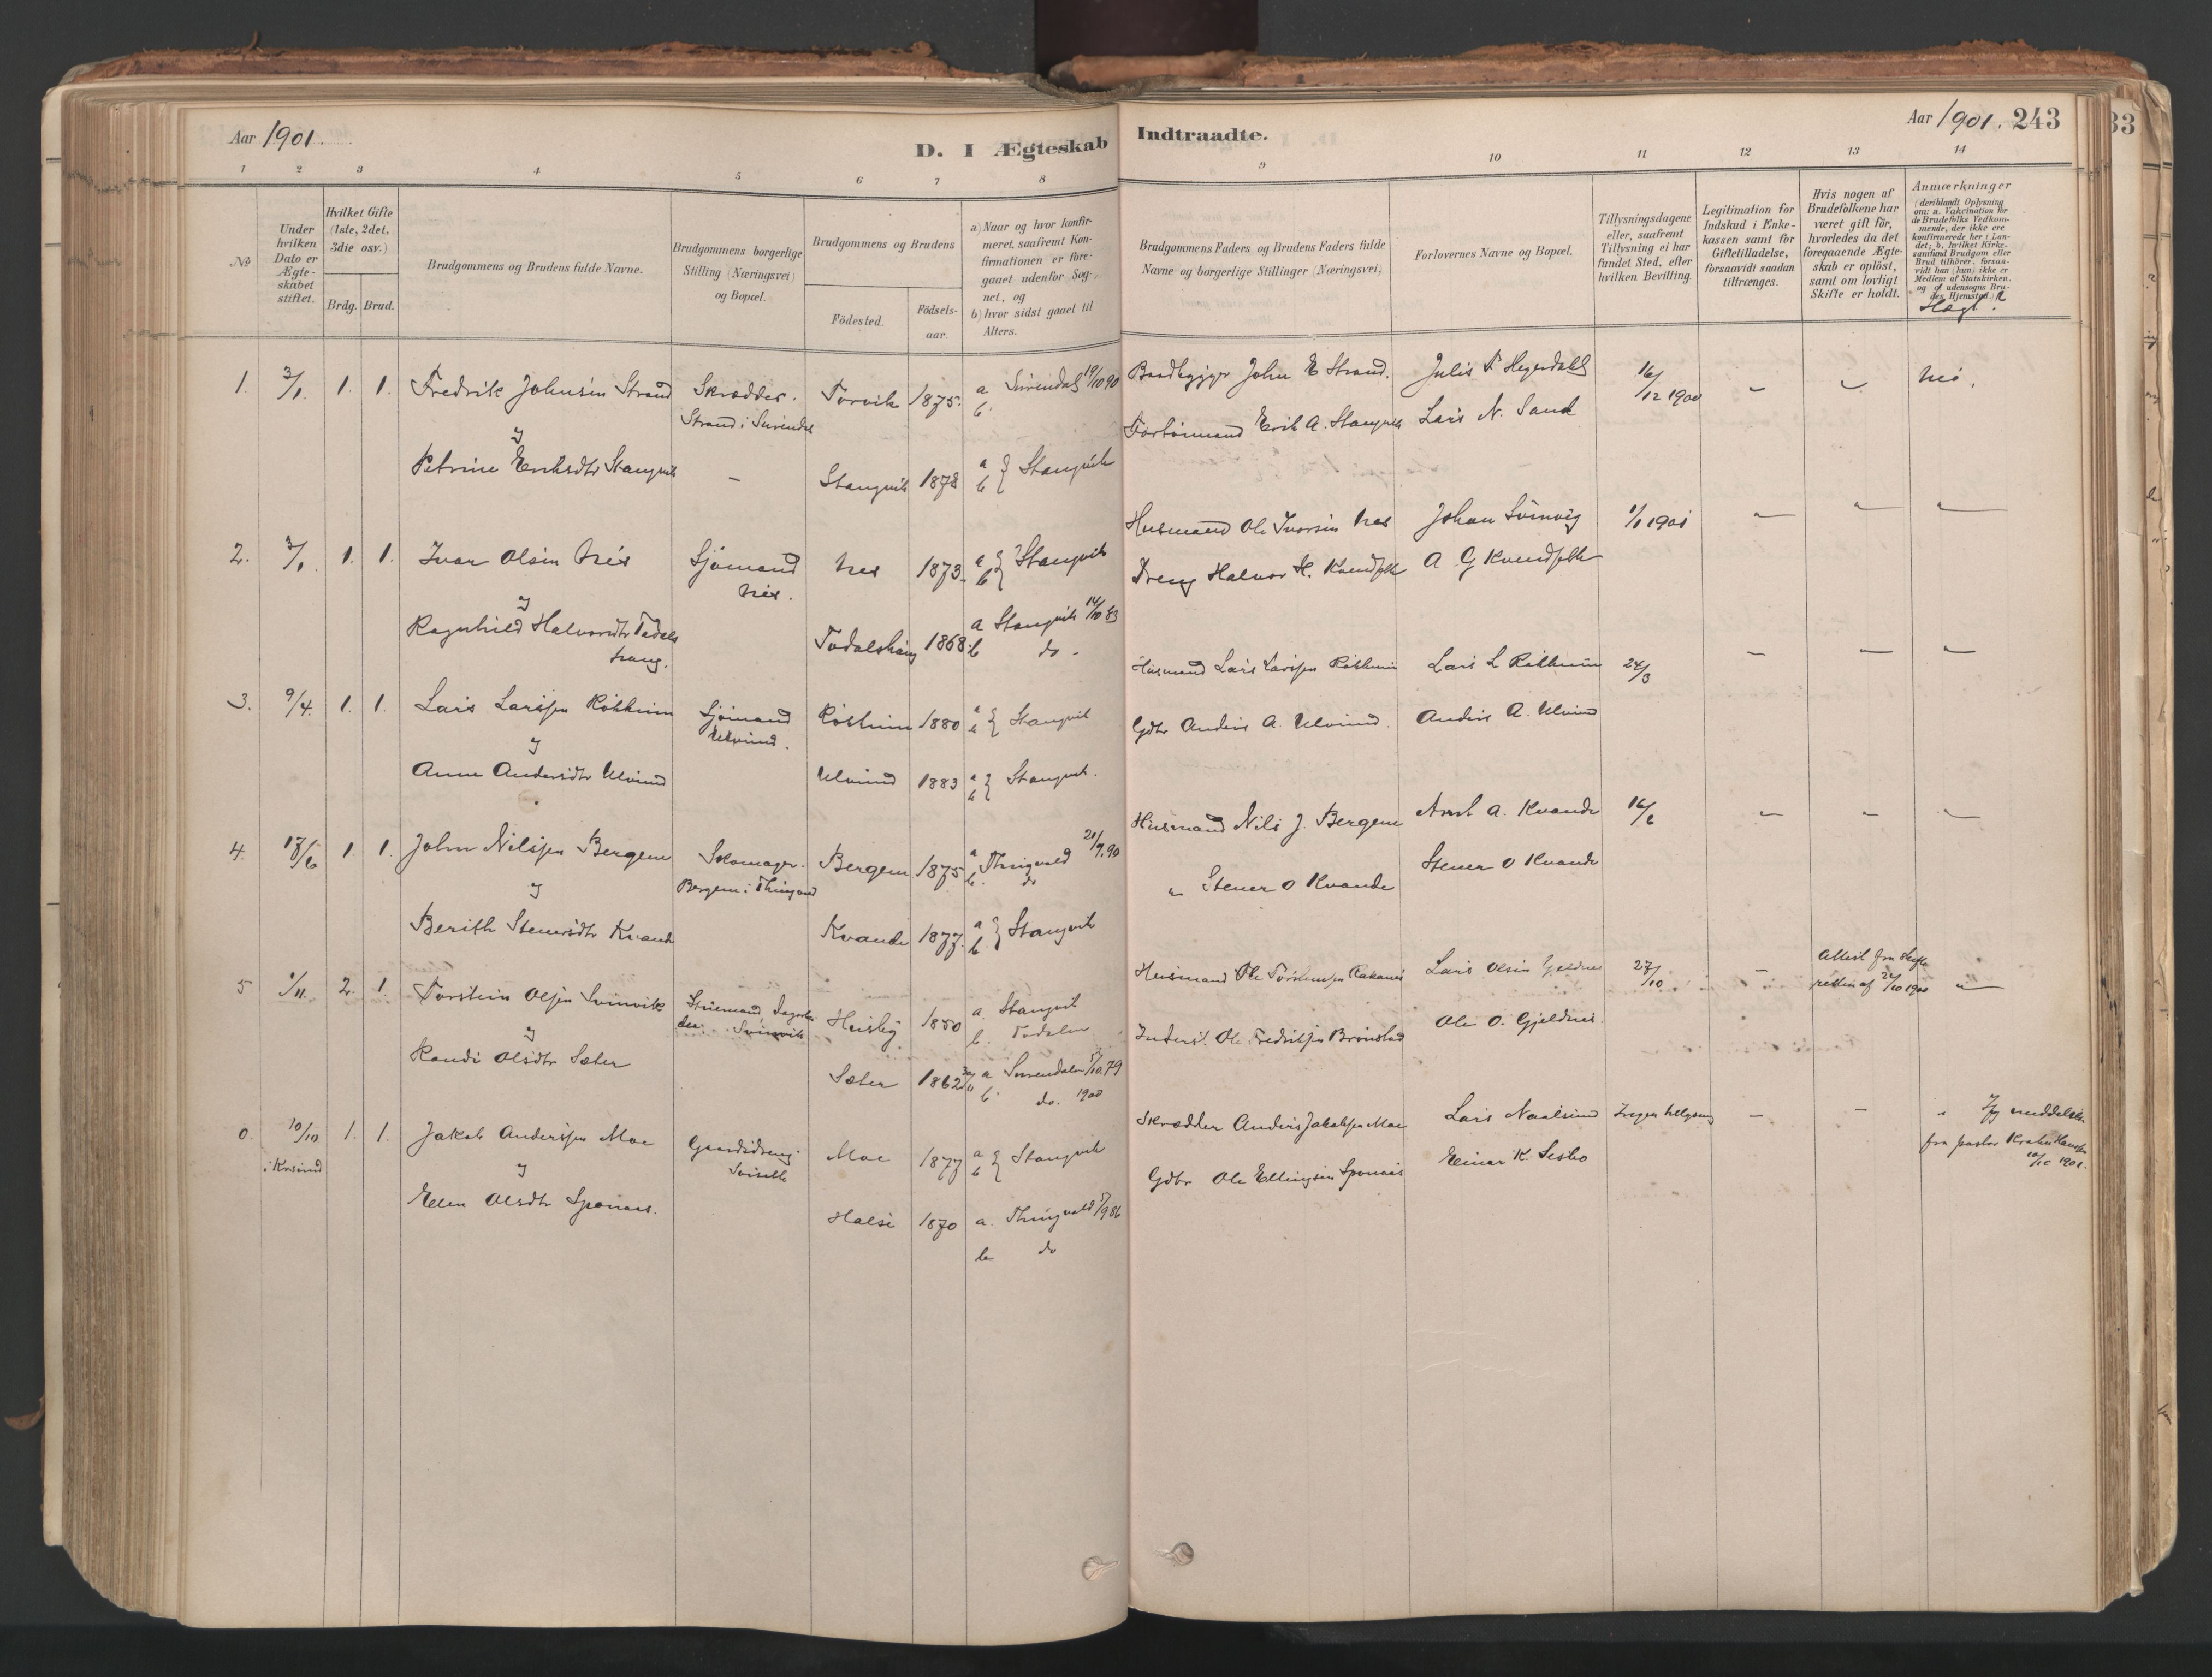 Aar 1901.
D. I Ægteskab
Indtraadte.
Aar 1901. 243
33
1 2 3 4 5 6 7 8 9 10 11 12 13 14
No
Under hvilken Dato er Ægte-skabet stiftet.
Hvilket Gifte (1ste, 2det, 3die osv.)
Brdg. Brud.
Brudgommens og Brudens fulde Navne.
Brudgommens borgerlige Stilling (Næringsvei) og Bopæl.
Brudgommens og Brudens
Födested.
Födsels-aar.
a) Naar og hvor konfir-
meret, saafremt Kon-
firmationen er fore-
gaaet udenfor Sog-
net, og
b) hvor sidst gaaet til
Alters.
Brudgommens Faders og Brudens Faders fulde
Navne og borgerlige Stillinger (Næringsvei)
Forlovernes Navne og Bopæl.
Tillysningsdagene
eller, saafremt
Tillysning ei har
fundet Sted, efter
hvilken Bevilling.
Legitimation for
Indskud i Enke-
kassen samt for
Giftetilladelse,
forsaavidt saadan
tiltrænges.
Hvis nogen af
Brudefolkene har
været gift för,
hvorledes da det
foregaaende Ægte-
skab er oplöst,
samt om lovligt
Skifte er holdt.
Anmærkninger
(deriblandt Oplysning
om: a. Vakcination for
de Brudefolks Vedkom-
mende, der ikke ere
konfirmerede her i Lan-
det; b. hvilket Kirke-
samfund Brudgom eller
Brud tilhörer, forsaa-
vidt han (hun) ikke er
Medlem af Statskirken,
og c. udensogns Bru-
des Hjemsted.)
1. 3/1. 1. 1. Fredrik Johnsen Strand Skrædder. Torvik 1875. a Surendal 19/10 90
b.
Strand i Surendal
y
Petrine Eriksdtr Stangvik — Stangvik 1878 a b } Stangvik
Baadbygger John E Strand.
Erik A. Stangvik
Lars N. Sand
16/12 1900 — — Nei.
2. 3/1. 1. 1. Ivar Olsen Nes Sjömand Nes. Nes 1873. a b } Stangvik
y
Ragnhild Halvorsdtr Todals
haug.
Todalshaug 1868. a Stangvik 14/10 83
b do.
Husmand Ole Iversen Nes Johan Svinvig 1/1 1901 — — —
Dreng Halvor H.
3. 9/4. 1. 1. Lars Larssen Röthum Sjömand Ulvund. 1880 a b } Stangvik
y
Anne Andersdtr Ulvund Ulvund 1883 a b } Stangvik.
Husmand Lars Larssen Lars L 24/3 — — —
Gdbr Anders A. Ulvund. Anders A. Ulvund
4. 17/6 1. 1. John Nilssen Bergem Skomager. Bergem 1875 a Thingvold 21/9. 90
b. do
Bergem i Thingvold
y
Berith Stenersdtr Kvande Kvande 1877. a b } Stangvik
Husmand Nils J. Bergem A. Kvande 16/6 — — —
" Stener O Kvande Stener O Kvande
5 1/11. 2. 1. Torstein Olsen Svinvik Svinvik Husby 1850 a. Stangvik
b. Todalen
y
Randi Olsdtr Sæter Sæter 1862 a Surendalen 5/10. 79
b. do. 1900
Husmand Ole Lars Olsen Gjeldnes 27/10 — Attest fra Skifte
retten af 24/10 1901 "
Ole Fredriksen Brönstad Ole O. Gjeldnes.
0. 10/10 1. 1. Jakob Anderssen Moe Gaardsdreng Moe 1877 a b } Stangvik
i Krsund
y
Ellen Olsdtr Sponaas. Halse 1870 a. Thingvold 5/9 86
b do
Skrædder Anders Jakobsen Moe Lars Naalsund Ingen lysning — — " Ifg meddelelse
fra pastor Hansen
10/10 1901.
Gdbr Ole Ellingsen Sponaas Einar K.